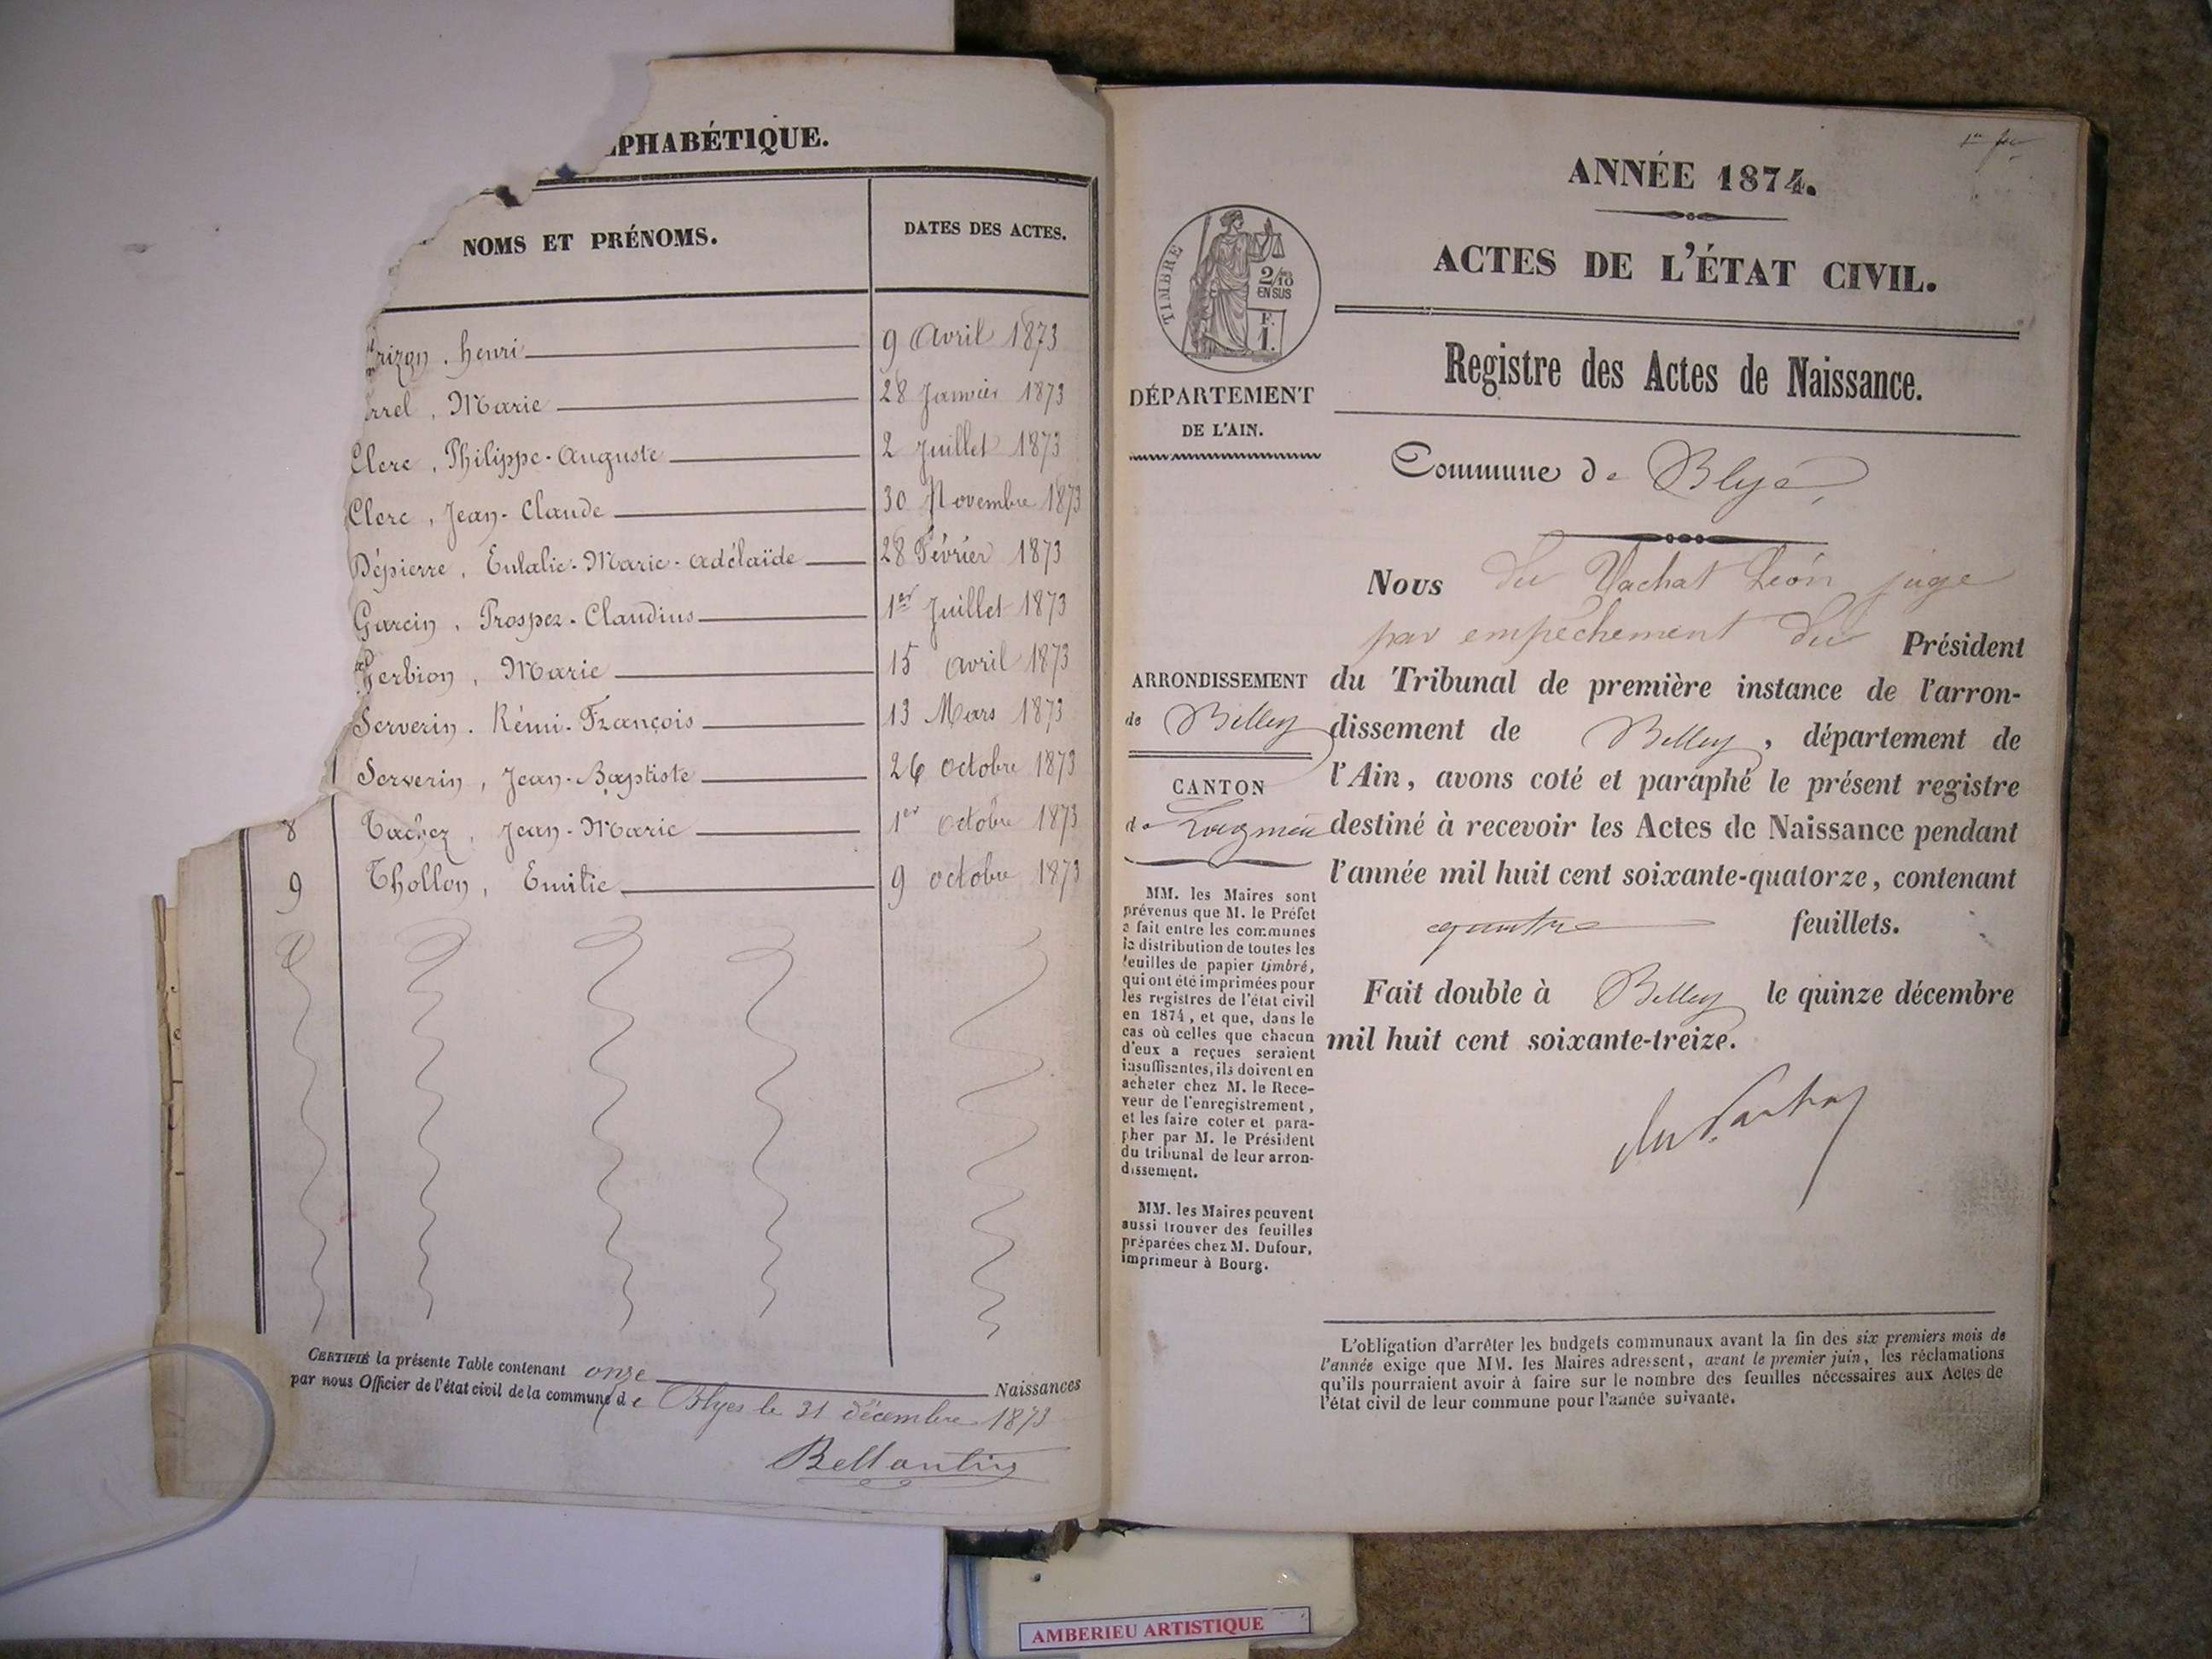 PHABÉTIQUE.
NOMS ET PRÉNOMS.
DATES DES ACTES.
rizon, henri 9 Avril 1873
rrel, Marie 28 Janvier 1873
Clerc, Philippe-Auguste 2 Juillet 1873
Clerc, Jean-Claude 30 Novembre 1873
Dépierre, Eulalie-Marie-adélaïde 28 Février 1873
Garcin, Prosper-Claudius 1er Juillet 1873
Gerbion, Marie 15 avril 1873
Serverin. Rémi-François 13 Mars 1873
1 Serverin, Jean-Baptiste 26 octobre 1873
8 Jean-Marie 1er octobre 1873
9 Thollon, Emilie 9 octobre 1873
CERTIFIÉ la présente Table contenant onze Naissances
par nous Officier de l'état civil de la commune de Blyes le 31 décembre 1873
ANNÉE 1874.
ACTES DE L'ÉTAT CIVIL.
TIMBRE
2/10
EN SUS
F.
1.
DÉPARTEMENT
DE L'AIN.
Registre des Actes de Naissance.
Commune de Blyes
Nous du Vachat Léon juge
par empêchement du Président
du Tribunal de première instance de l'arron-
dissement de Belley, département de
l'Ain, avons coté et paraphé le présent registre
destiné à recevoir les Actes de Naissance pendant
l'année mil huit cent soixante-quatorze, contenant
quatre feuillets.
Fait double à Belley le quinze décembre
mil huit cent soixante-treize.
du Vachat
ARRONDISSEMENT
de Belley
CANTON
de Lagnieu
MM. les Maires sont
prévenus que M. le Préfet
a fait entre les communes
la distribution de toutes les
feuilles de papier timbré,
qui ont été imprimées pour
les registres de l'état civil
en 1874, et que, dans le
cas où celles que chacun
d'eux a reçues seraient
insuffisantes, ils doivent en
acheter chez M. le Rece-
veur de l'enregistrement,
et les faire coter et para-
pher par M. le Président
du tribunal de leur arron-
dissement.
MM. les Maires peuvent
aussi trouver des feuilles
préparées chez M. Dufour,
imprimeur à Bourg.
L'obligation d'arrêter les budgets communaux avant la fin des six premiers mois de
l'année exige que MM. les Maires adressent, avant le premier juin, les réclamations
qu'ils pourraient avoir à faire sur le nombre des feuilles nécessaires aux Actes de
l'état civil de leur commune pour l'année suivante.
AMBERIEU ARTISTIQUE